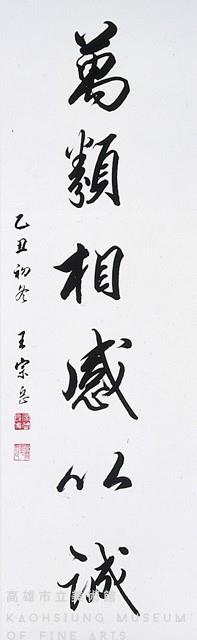 萬類相感以誠
乙丑初冬 王宗岳
高雄市立美術館
KAOHSIUNG MUSEUM
OF FINE ARTS